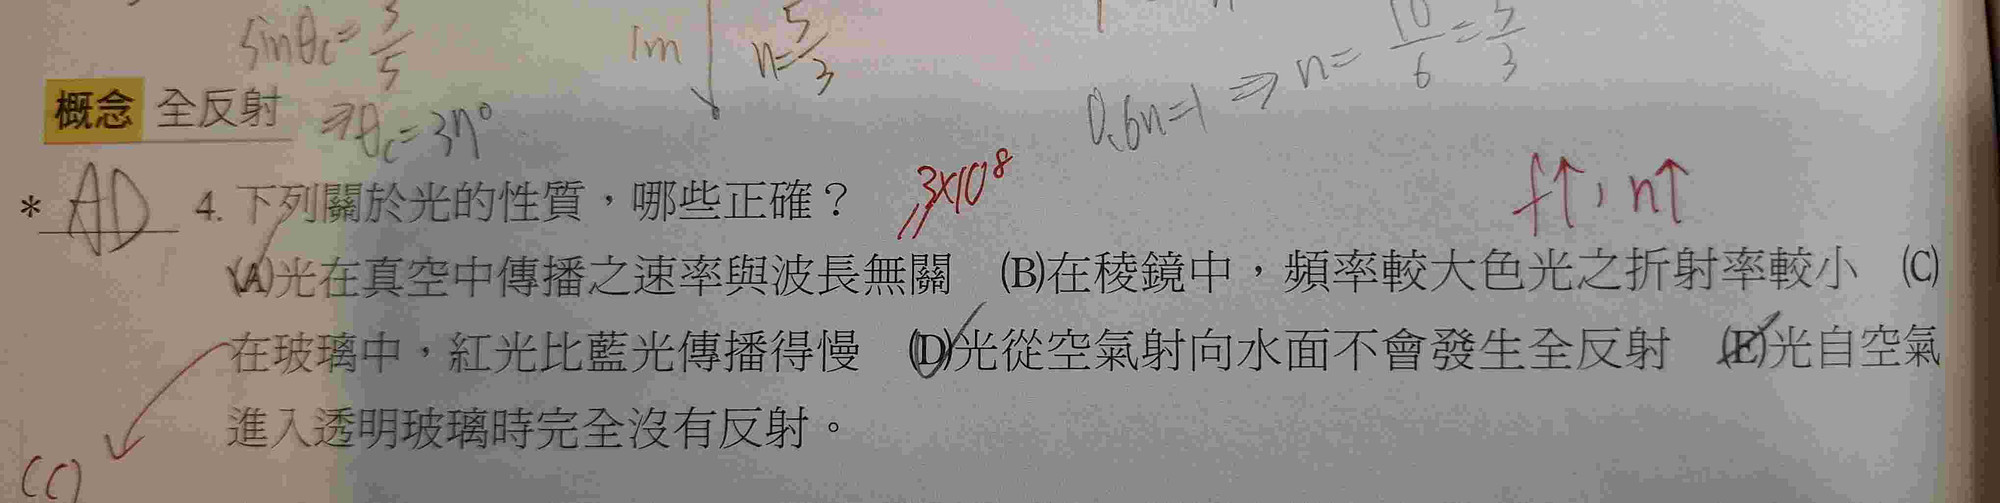 sinθc=3/5
1m
n=5/3
0.6n=1 ⇒ n=10/6=5/3
概念 全反射
⇒θc=37°
* AD 4. 下列關於光的性質，哪些正確？ 3×10⁸
f↑，n↑
(A)光在真空中傳播之速率與波長無關 (B)在稜鏡中，頻率較大色光之折射率較小 (C)
在玻璃中，紅光比藍光傳播得慢 (D)光從空氣射向水面不會發生全反射 (E)光自空氣
進入透明玻璃時完全沒有反射。
(C)